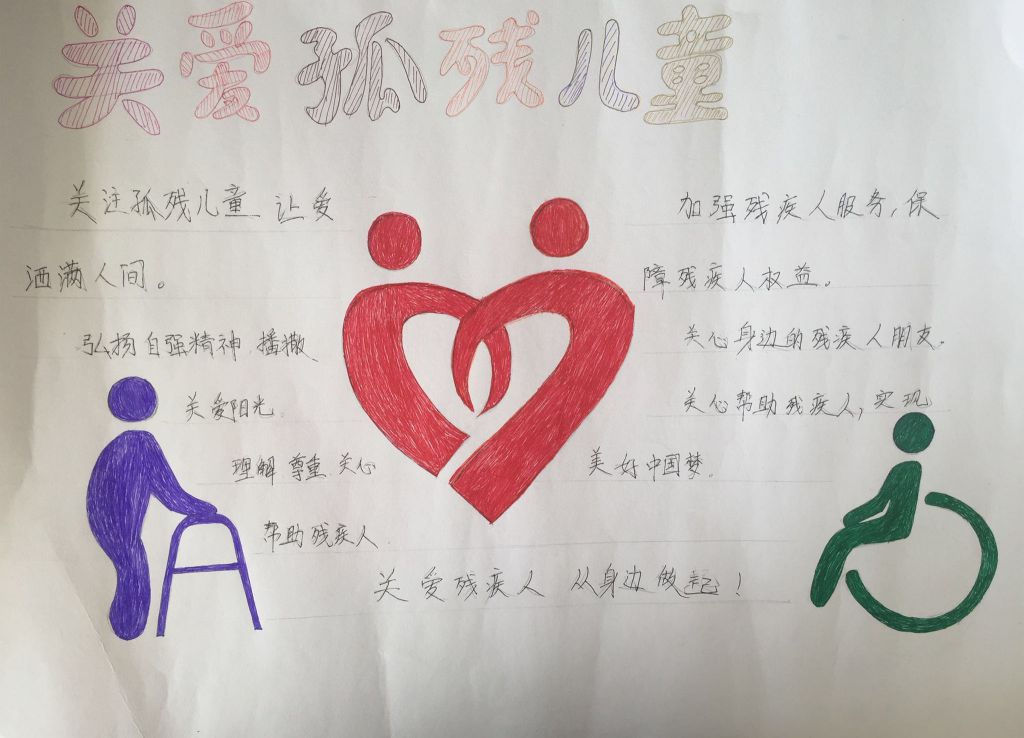 关爱孤残儿童
关注孤残儿童 让爱
洒满人间。
弘扬自强精神 播撒
关爱阳光.
理解 尊重 关心
帮助残疾人.
加强残疾人服务,保
障残疾人权益。
关心身边的残疾人朋友.
关心帮助残疾人,实现
美好中国梦.
关爱残疾人 从身边做起!